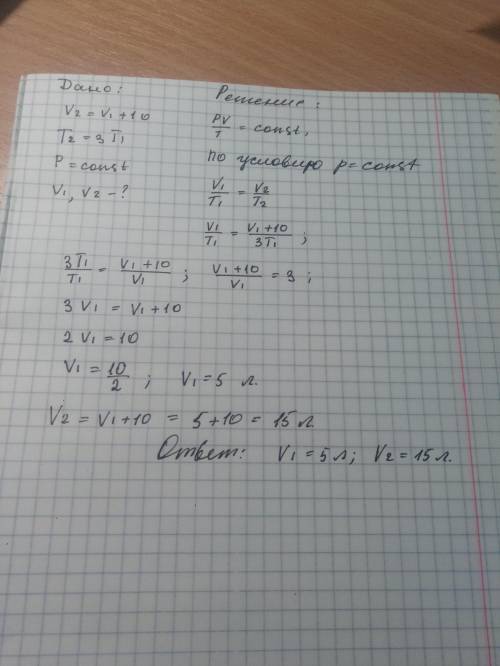 Дано:
V2 = V1 + 10
T2 = 3 T1
P = const
V1, V2 - ?
Решение:
PV/T = const,
по условию p = const
V1/T1 = V2/T2
V1/T1 = V1 + 10/3T1 ;
3T1/T1 = V1 + 10/V1 ; V1 + 10/V1 = 3 ;
3 V1 = V1 + 10
2 V1 = 10
V1 = 10/2 ; V1 = 5 л.
V2 = V1 + 10 = 5 + 10 = 15 л.
Ответ: V1 = 5 л; V2 = 15 л.